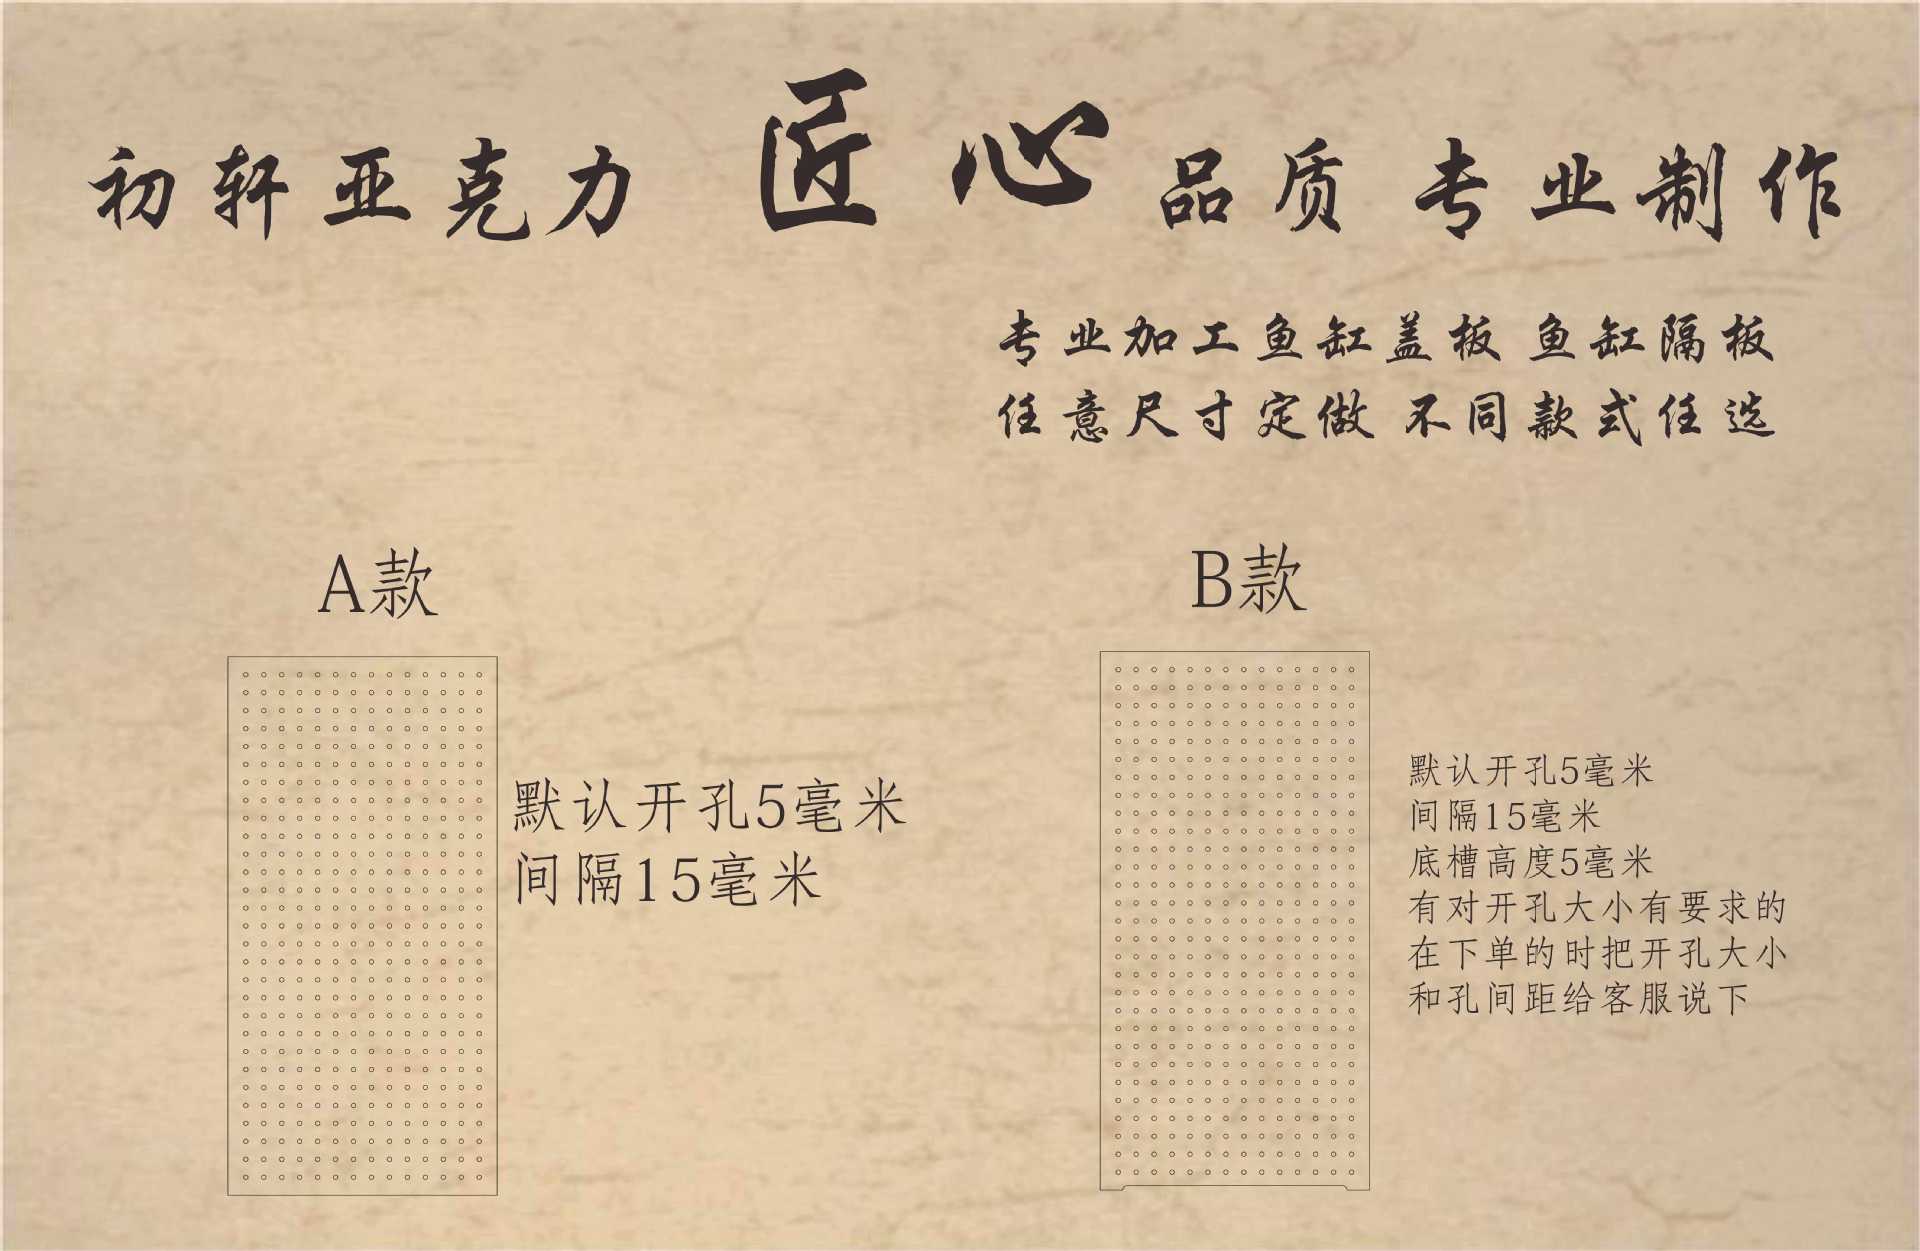 初轩亚克力 匠心品质 专业制作
专业加工鱼缸盖板 鱼缸隔板
任意尺寸定做 不同款式任选
A款
默认开孔5毫米
间隔15毫米
B款
默认开孔5毫米
间隔15毫米
底槽高度5毫米
有对开孔大小有要求的
在下单的时把开孔大小
和孔间距给客服说下